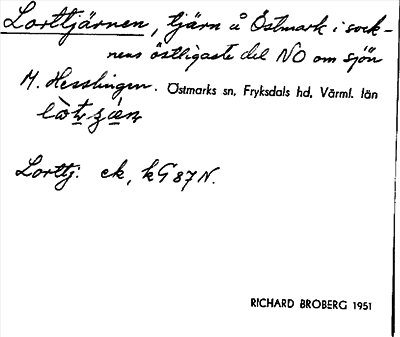 Lorttjärnen, tjärn å Östmark i sock-
nens östligaste del NO om sjön
M. Hesslingen. Östmarks sn, Fryksdals hd, Värml. län
Lorttj. ek, kG 87 N.
RICHARD BROBERG 1951